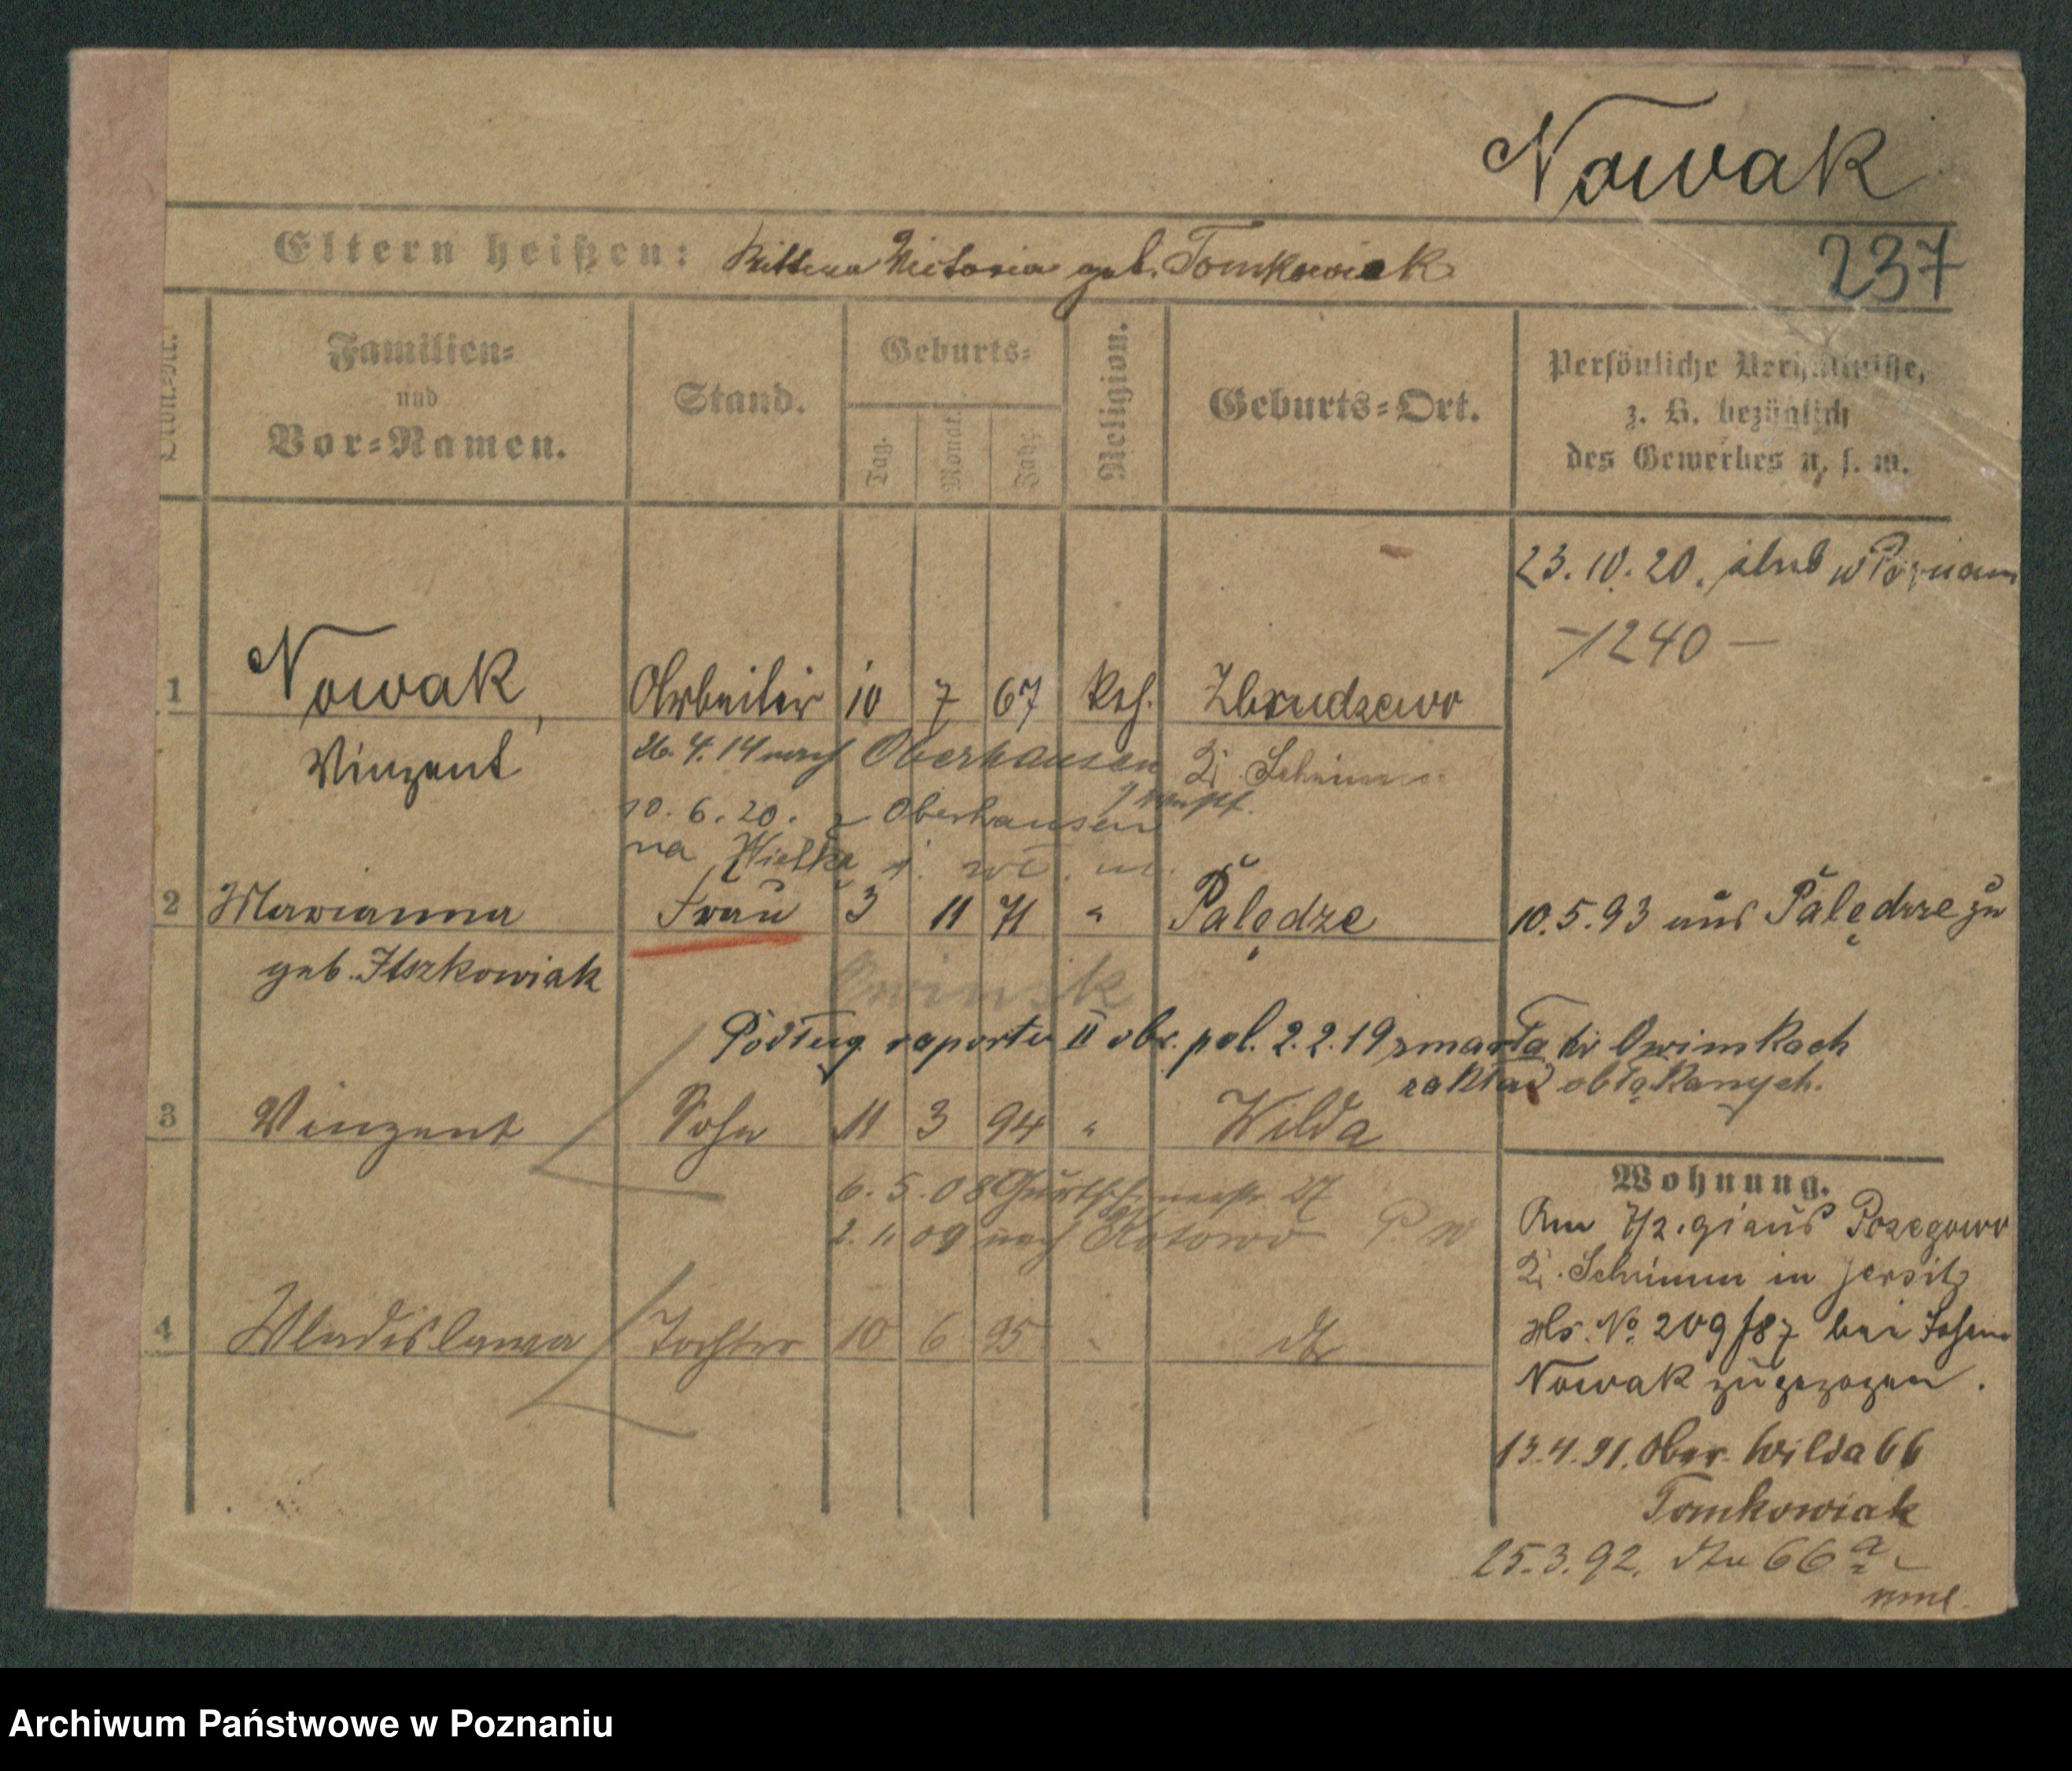 Nowak
237
Eltern heißen: Victoria geb. Tomkowiak
Familien=
und
Vor=Namen.
Stand.
Geburts=
Tag.
Monat.
Jahr.
Religion.
Geburts=Ort.
Persönliche Verhältnisse,
z. B. bezüglich
des Gewerbes u. s. w.
23.10.20. ślub w Poznaniu
1240 —
1 Nowak, Arbeiter 10 7 67 kth. Zbrudzewo
Vinzent
26.4.14 nach Oberhausen
Kr. Schrimm
10.6.20. z Oberhausen
na
2 Marianna Frau 3 11 71 " Palędze 10.5.93 aus Palędze zu
geb. Itszkowiak
Owinsk
Podług raportu II obr. pol. 2.2.19 zmarła w Owinskach
zakład obłąkanych.
3 Vinzent Sohn 11 3 94 " Wilda
6.5.08 27
2.1.09 nach Kotowo P. W
4 Wladislawa Tochter 10 6 95 dto
Wohnung.
Am 7/2.91 aus Pozegowo
Kr. Schrimm in Jersitz
Hs. No. 209/87 bei
Nowak zugezogen.
13.4.91. Ober Wilda 66
Tomkowiak
25.3.92. dto 66a